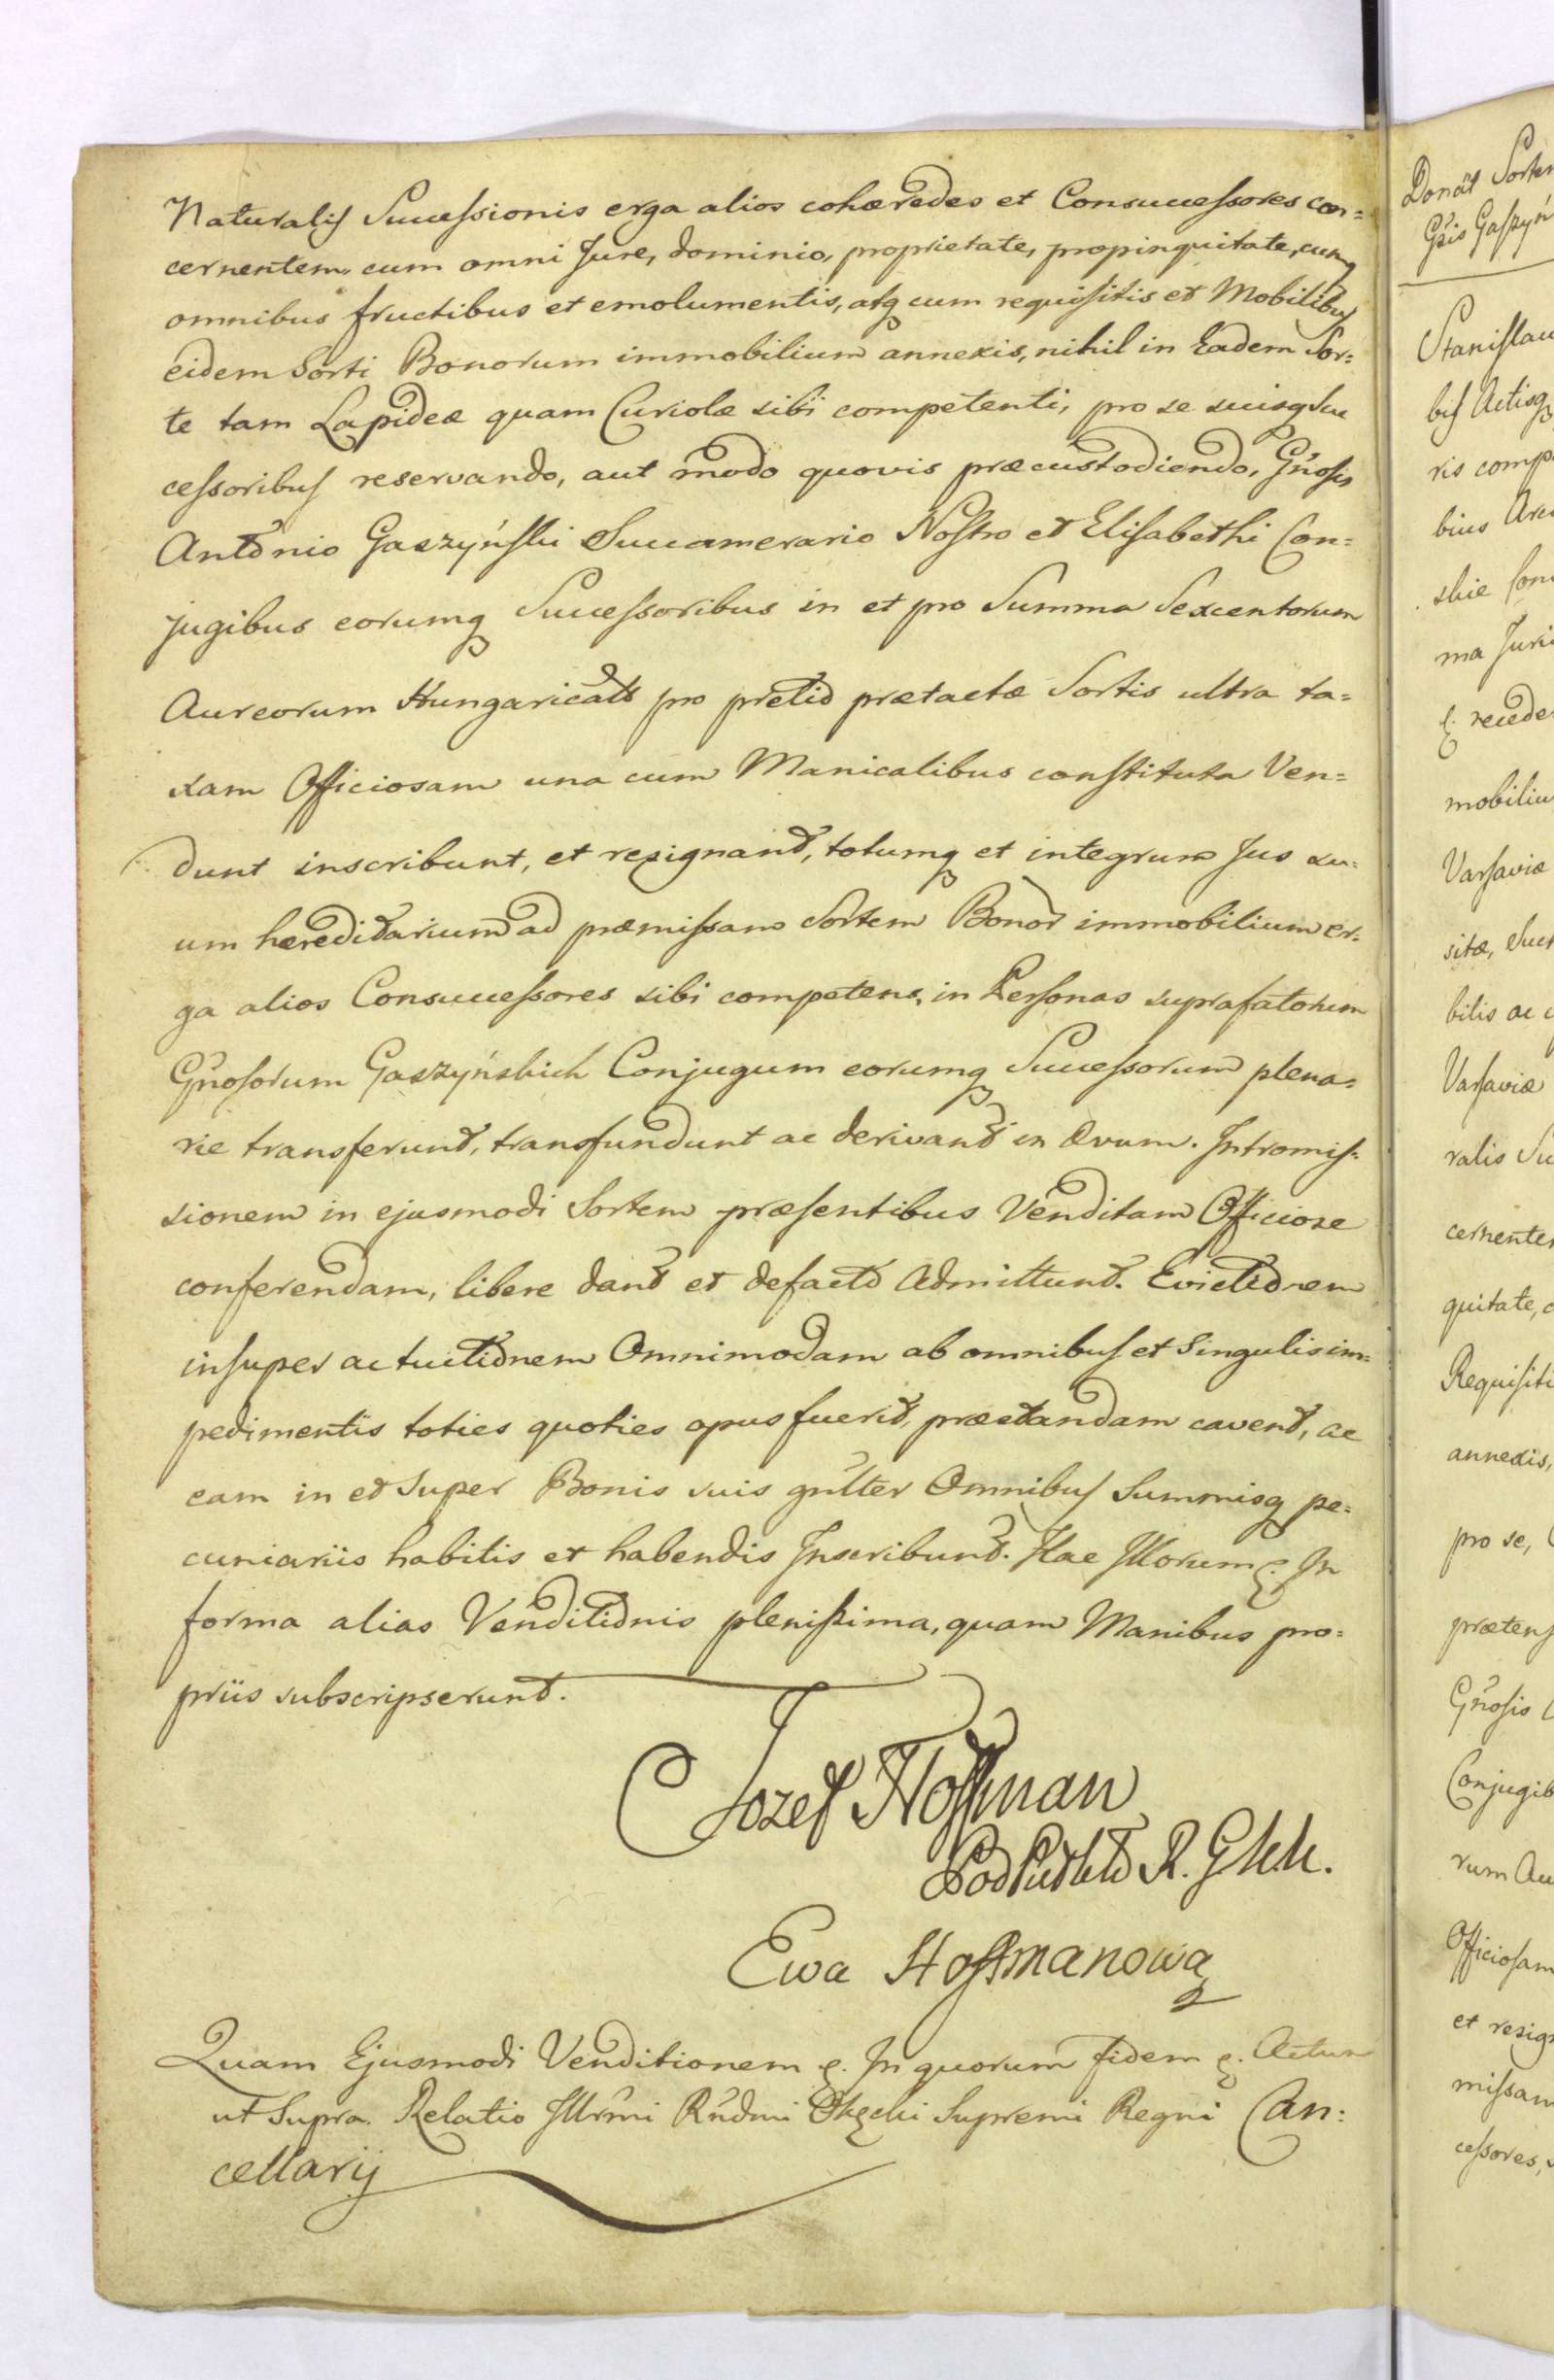 Naturalis Successionis erga alios cohæredes et Consuccessores con=
cernentem, cum omni Jure, dominio, proprietate, propinquitate, cumq
omnibus fructibus et emolumentis, atq cum requisitis et Mobilibus
eidem Sorti Bonorum immobilium annexis, nihil in Eadem Sor=
te tam Lapideæ quam Curiolæ sibi competenti, pro se suisq Suc
cessoribus reservando, aut modo quovis præcustodiendo, Gnosis
Antonio Gaszyński Succamerario Nostro et Elisabethi Con=
jugibus eorumq Successoribus in et pro Summa Sexcentorum
Aureorum Hungaricalium pro pretio prætactæ Sortis ultra ta=
xam Officiosam una cum Manicalibus constituta Ven=
dunt inscribunt, et resignant, totumq et integrum Jus su=
um hæreditarium ad præmissam Sortem Bonor immobilium er=
ga alios Consuccessores sibi competens, in Personas suprafatorum
Gnosorum Gaszyńskich Conjugum eorumq Successorum plena=
rie transferunt, transfundunt ac derivant in Ævum. Intromis=
sionem in ejusmodi Sortem præsentibus Venditam Officiose
conferendam, libere dant et defacto Admittunt. Evictionem
insuper ac tuitionem Omnimodam ab omnibus et Singulis im=
pedimentis toties quoties opus fuerit, præstandam cavent, ac
eam in et Super Bonis suis gnlter Omnibus Summisq pe=
cuniariis habitis et habendis Inscribunt. Hac Illorum &. In
forma alias Venditionis plenissima, quam Manibus pro=
priis subscripserunt.
Jozef Hoffman
R. G kk.
Ewa Hoffmanowa
Quam Ejusmodi Venditionem &. In quorum fidem &. Actum
ut Supra. Relatio Illrmi Rndmi Okęcki Supremi Regni Can:
cellarij
Donat Sorten
Gsis Gaszyń
Stanislau
bis Actisq
ris comp
bius Arc
skie
ma Juri
&. recede
mobiliu
Varsaviæ
sitæ, Suc
bilis ac c
Varsaviæ
ralis Su
cernente
quitate, c
Requisiti
annexis,
pro se,
prætens
Gnosis
Conjugib
rum Au
Officiosam
et resig
missam
cessores,